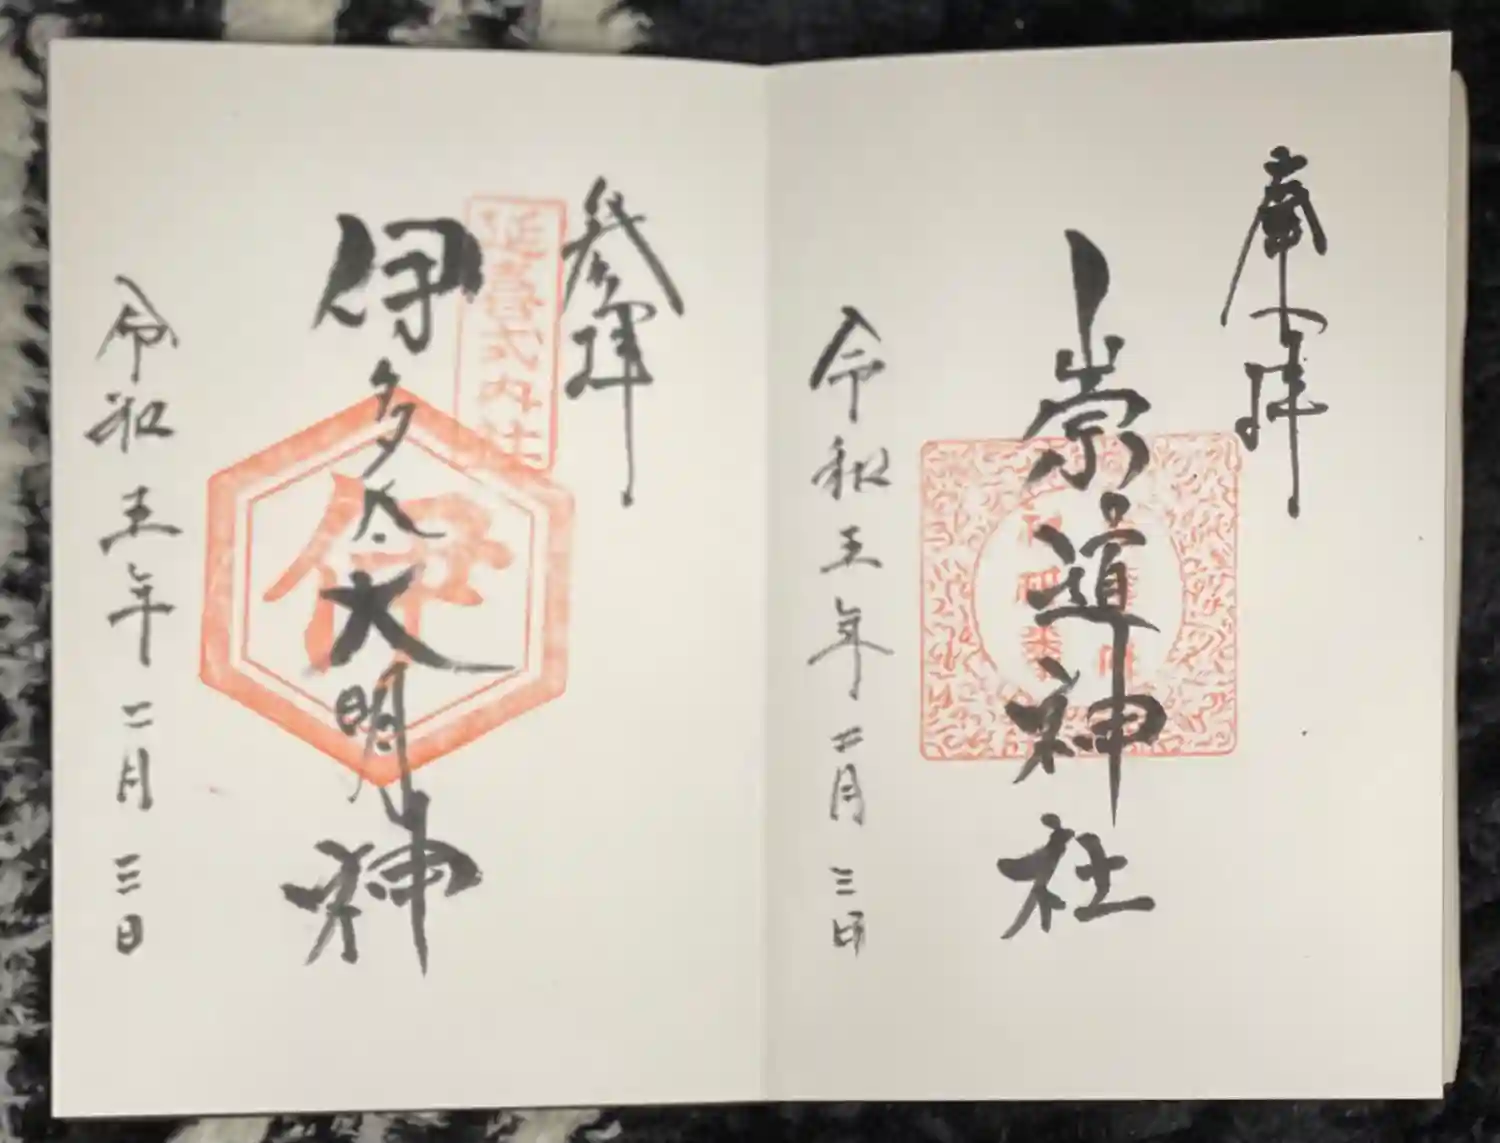 奉拝
崇道神社
令和五年二月三日
参拝
延喜式内社
伊多太大明神
伊
令和五年二月三日